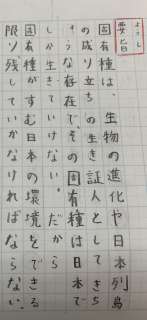 ようし
要旨
固有種は、生物の進化や日本列島
の成り立ちの生き証人としてきち
ょうな存在で、その固有種は日本で
しか生きていけない。だから
固有種がすむ日本の環境をできる
限り残していかなければならない。